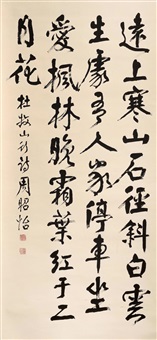 遠上寒山石徑斜白雲
生處有人家停車坐
愛楓林晚霜葉紅于二
月花
杜牧山行詩周昭怡